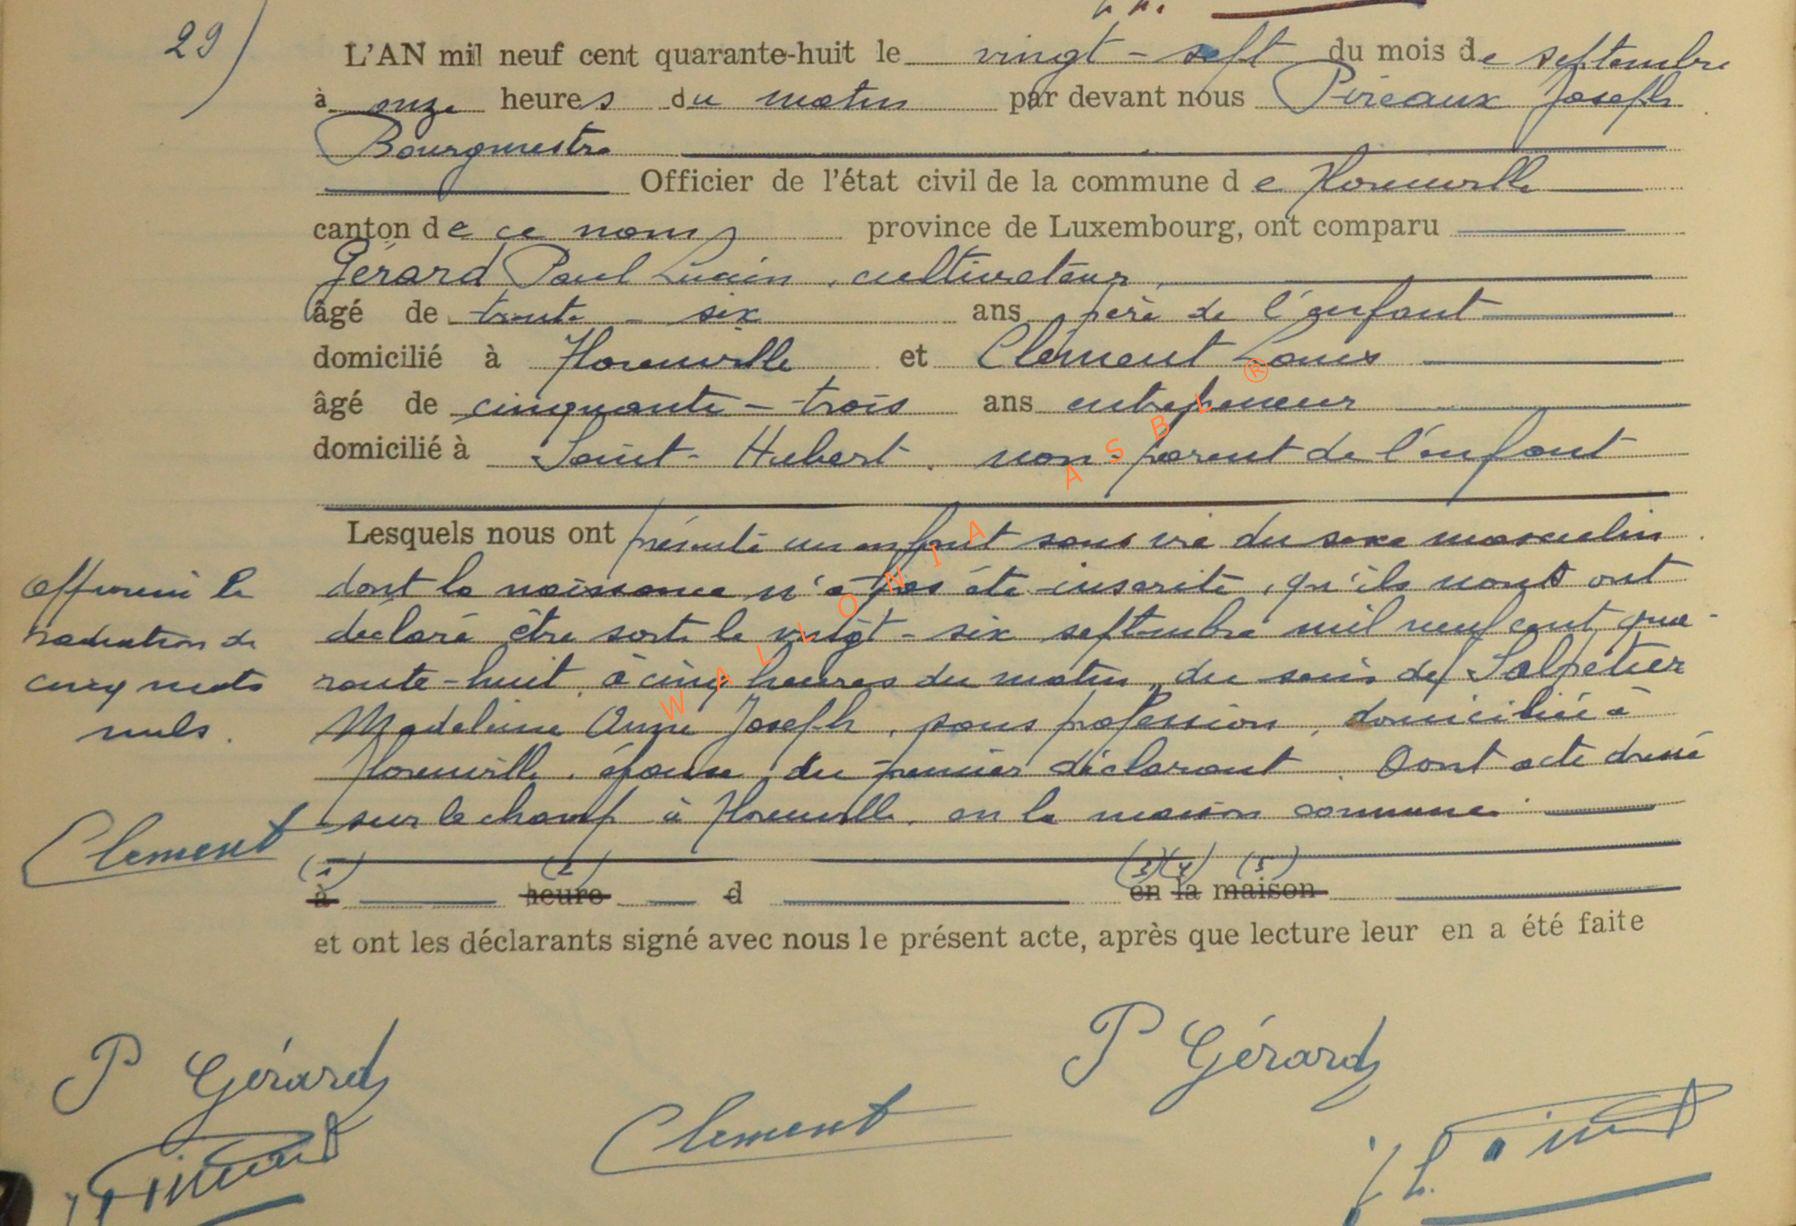 29)
L'AN mil neuf cent quarante-huit le vingt-sept du mois de septembre
à onze heures du matin par devant nous Pireaux Joseph
Bourgmestre
Officier de l'état civil de la commune de Florenville
canton de ce nom, province de Luxembourg, ont comparu
Gérard Paul Lucien, cultivateur,
âgé de trente-six ans père de l'enfant
domicilié à Florenville et Clément Louis
âgé de cinquante-trois ans entrepreneur
domicilié à Saint-Hubert, non-parent de l'enfant
Lesquels nous ont présenté un enfant sans vie du sexe masculin
dont la naissance n'a pas été inscrite, qu'ils nous ont
déclaré être sorti le vingt-six septembre mil neuf cent qua-
rante-huit, à cinq heures du matin, du sein de Salpetier
Madeleine Anne Joseph, sans profession, domiciliée à
Florenville, épouse du premier déclarant. Dont acte dressé
sur le champ à Florenville, en la maison commune.
(1) (2) (3) (4) (5)
à heure d en la maison
et ont les déclarants signé avec nous le présent acte, après que lecture leur en a été faite
la
radiation de
cinq mots
nuls.
Clement
P Gérard
Clement
P Gérard
WALLONIA ASBL ®